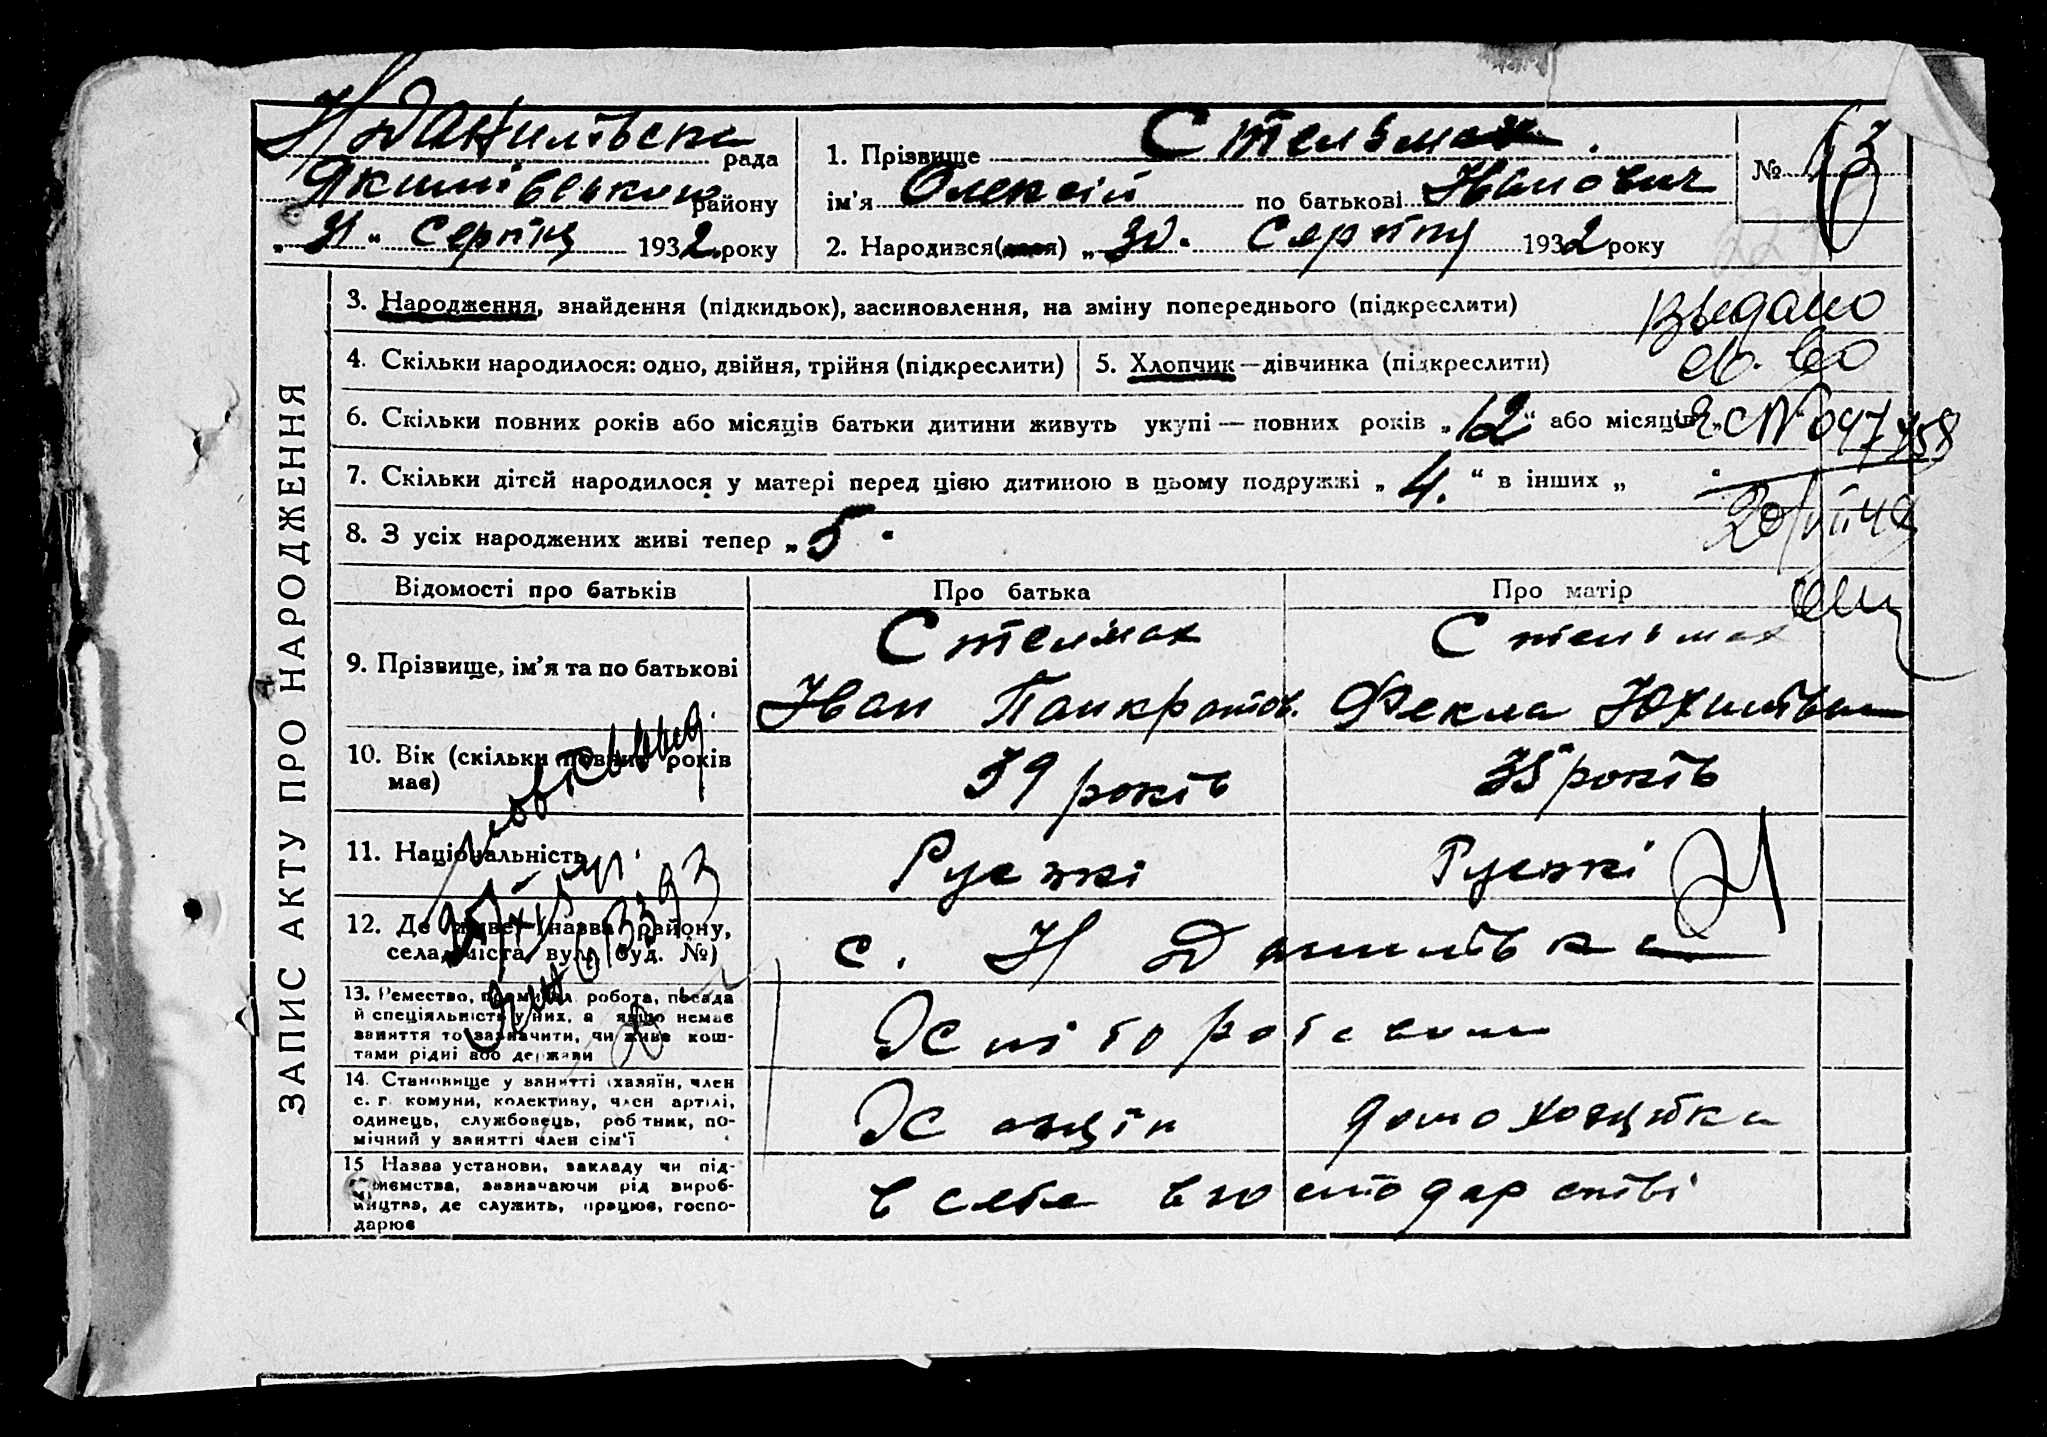 ЗАПИС АКТУ ПРО НАРОДЖЕННЯ
Н Данилівська рада
Якимівського району
„31“ Серпня 1932 року
1. Прізвище Стельмах.
ім'я Олексій по батькові Іванович
2. Народився(лася) „30“ Серпня 1932 року
№ 13
3. Народження, знайдення (підкидьок), засиновлення, на зміну попереднього (підкреслити)
Выдано
4. Скільки народилося: одно, двійня, трійня (підкреслити)
5. Хлопчик—дівчинка (підкреслити)
св. во
6. Скільки повних років або місяців батьки дитини живуть укупі — повних років „12“ або місяців „
№ 047758
7. Скільки дітей народилося у матері перед цією дитиною в цьому подружжі „4.“ в інших „ “
8. З усіх народжених живі тепер „5“
Відомості про батьків
Про батька
Про матір
9. Прізвище, ім'я та по батькові
Стелмах
Іван Панкратов.
Стельмах
Фекла Юхимівна
10. Вік (скільки повних років має)
39 років
35 років
11. Національність
Руський
Руські
12. Де живе (назва району, села, міста, вул., буд. №)
с. Н Данилівка
13. Ремество, промисел, робота, посада
й спеціяльність у них, а якщо немає
заняття то зазначити, чи живе кош-
тами рідні або держави
14. Становище у занятті (хазяїн, член
с. г. комуни, колективу, член артілі,
одинець, службовець, робітник, по-
мічний у занятті член сім'ї
Хазяїн
домохозяйка
15. Назва установи, закладу чи під-
приємства, зазначаючи рід вироб-
ництва, де служить, працює, госпо-
дарює
в себе в господарстві